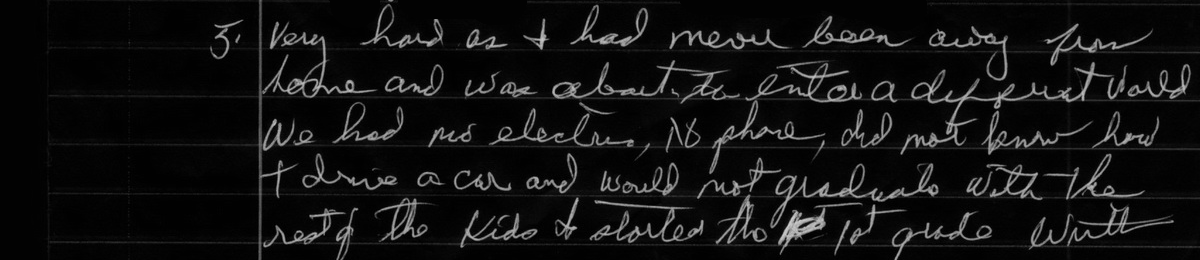 3. Very hard as I had never been away from
home and was about to enter a different World
We had no electric, No phone, did not know how
t drive a car and would not graduate with the
rest of the Kids I started the 1st grade With